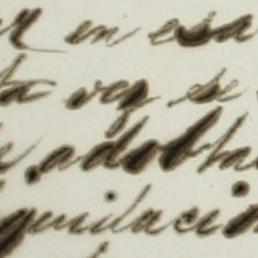 er en esa
ta vez se
e, adobta
quilacio